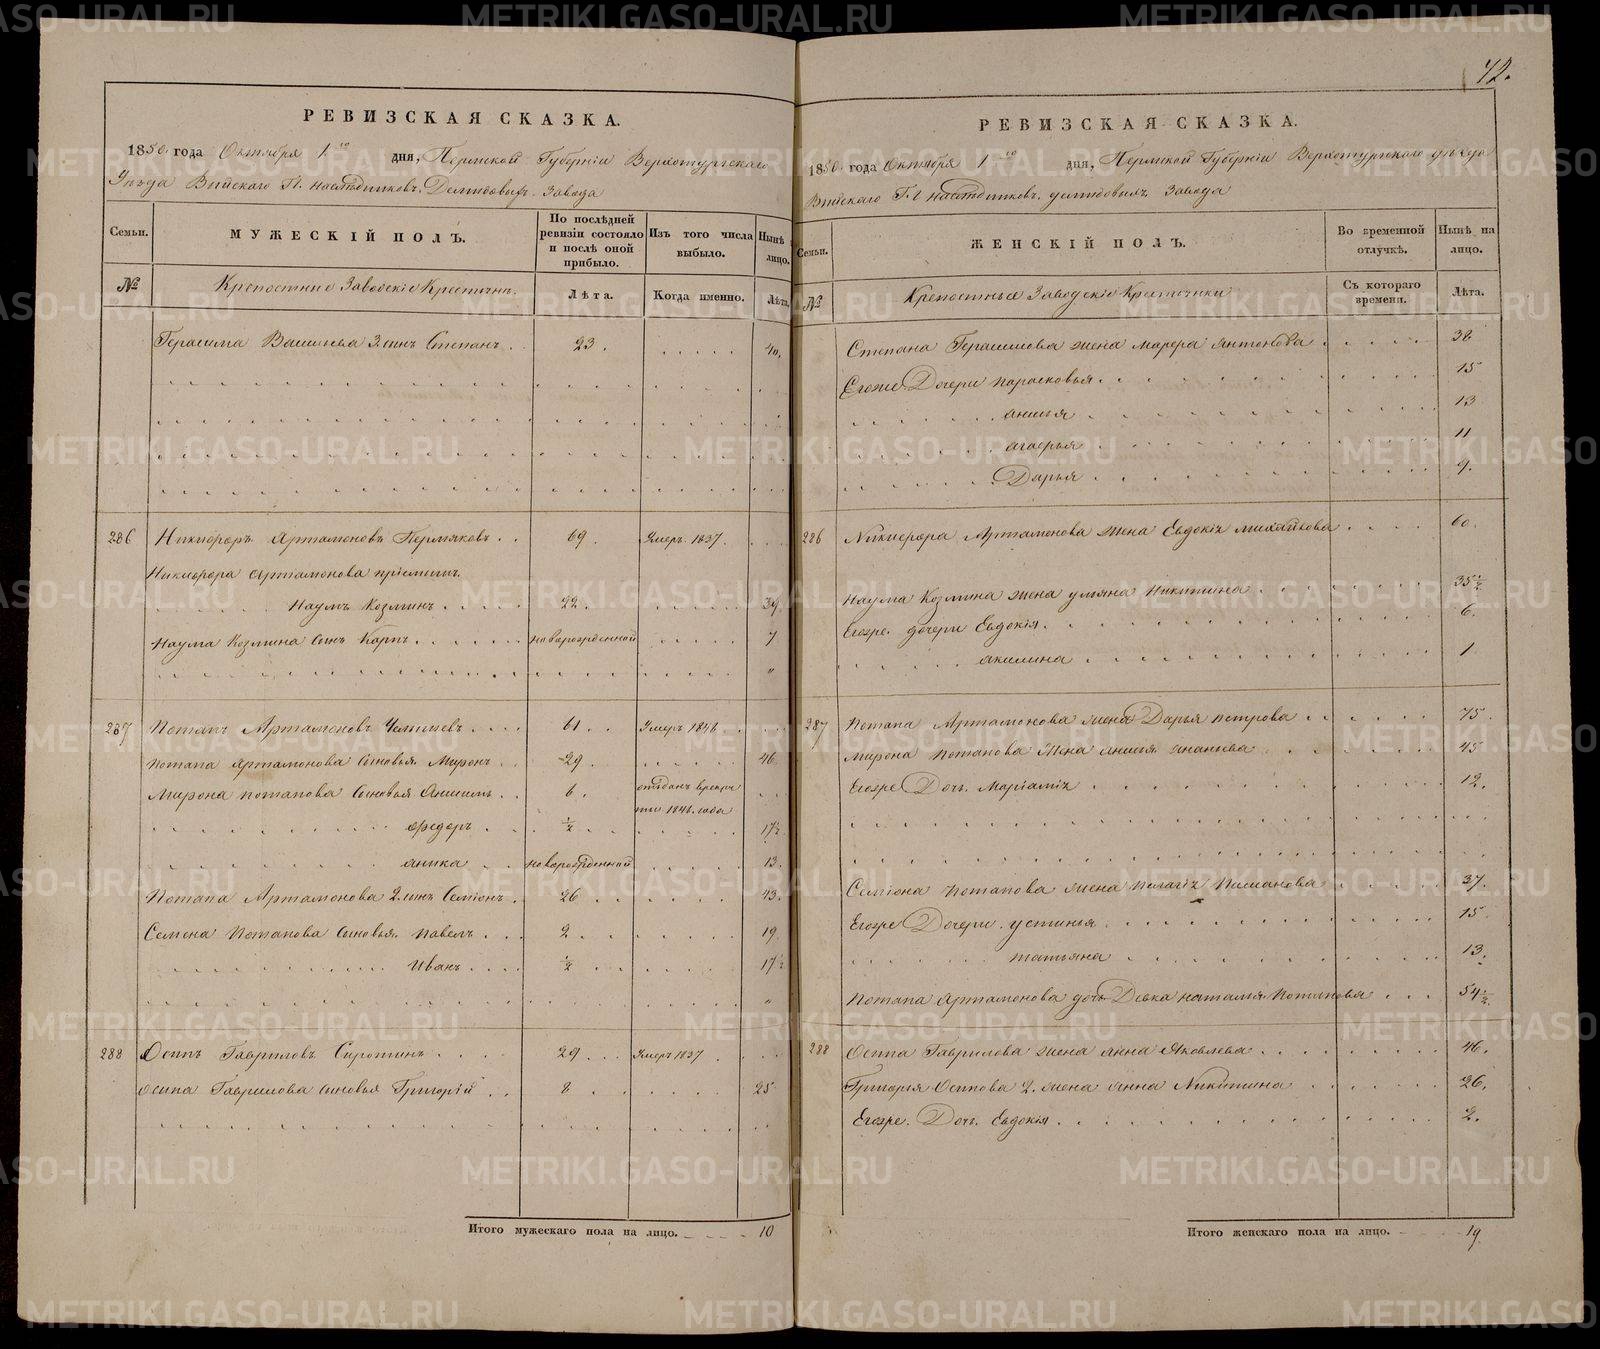 42.
РЕВИЗСКАЯ СКАЗКА.
1850 года Октября 1го дня, Пермской Губерніи Верхотурскаго
Уѣзда Выйскаго Г.г. наслѣдниковъ Демидовыхъ Завода
Семьи.
МУЖЕСКІЙ ПОЛЪ.
По послѣдней ревизіи состояло и послѣ оной прибыло.
Изъ того числа выбыло.
Нынѣ на лицо.
№
Крепостные Заводскіе Крестьяне.
Лѣта.
Когда именно.
Лѣта.
Герасима Васильева 3 сынъ Степанъ 23. 40.
286 Никифоръ Артамоновъ Пермяковъ 69. Умеръ 1837.
Никифора Артамонова пріемышъ
Наумъ Козминъ 22. 39
Наума Козмина сынъ Карпъ новорожденной 7
"
287 Потапъ Артамоновъ 61. Умеръ 1846
Потапа Артамонова Сыновья Миронъ 29. 46
Мирона Потапова Сыновья 6. отданъ врекру
ты 1846. года
Федоръ ½ 17½
аника новорожденной 13.
Потапа Артамонова 2 сынъ Семіонъ 26 43.
Семена Потапова Сыновья Павелъ 2 19.
Иванъ ½ 17½
"
288 Осипъ Гавриловъ Сиротинъ 29 Умеръ 1837
Осипа Гаврилова сыновья Григорій 8 25
Итого мужескаго пола на лицо. 10
РЕВИЗСКАЯ СКАЗКА.
1850 года Октября 1го дня, Пермской Губерніи Верхотурскаго уѣзда
Выйскаго Г.г наслѣдниковъ демидовыхъ Завода
Семьи.
ЖЕНСКІЙ ПОЛЪ.
Во временной отлучкѣ.
Нынѣ на лицо.
№
Крепостные Заводскіе Крестьянки
Съ котораго времени.
Лѣта.
Степана Герасимова жена Марфа Антонова 38
Егоже Дочери парасковья 15
анисья 13
агафья 11
Дарья 9.
286 Никифора Артамонова жена Евдокія михайлова 60.
Наума Козмина жена ульяна Никитина 35½
Егоже. дочери Евдокія. 6.
акилина 1
287 Потапа Артамонова жена Дарья петрова 75.
Мирона Потапова жена анисья 45
Егоже Дочь Маріамія 12.
Семіона потапова жена пелагія 37.
Егоже Дочери. устинья 15
татьяна 13.
Потапа Артамонова дочь Девка наталья Потапова 54½.
288 Осипа Гаврилова жена анна Яковлева 46.
Григорья Осипова 2. жена анна Никитина 26.
Егоже. Дочь Евдокія 2.
Итого женскаго пола на лицо. 19
METRIKI.GASO-URAL.RU